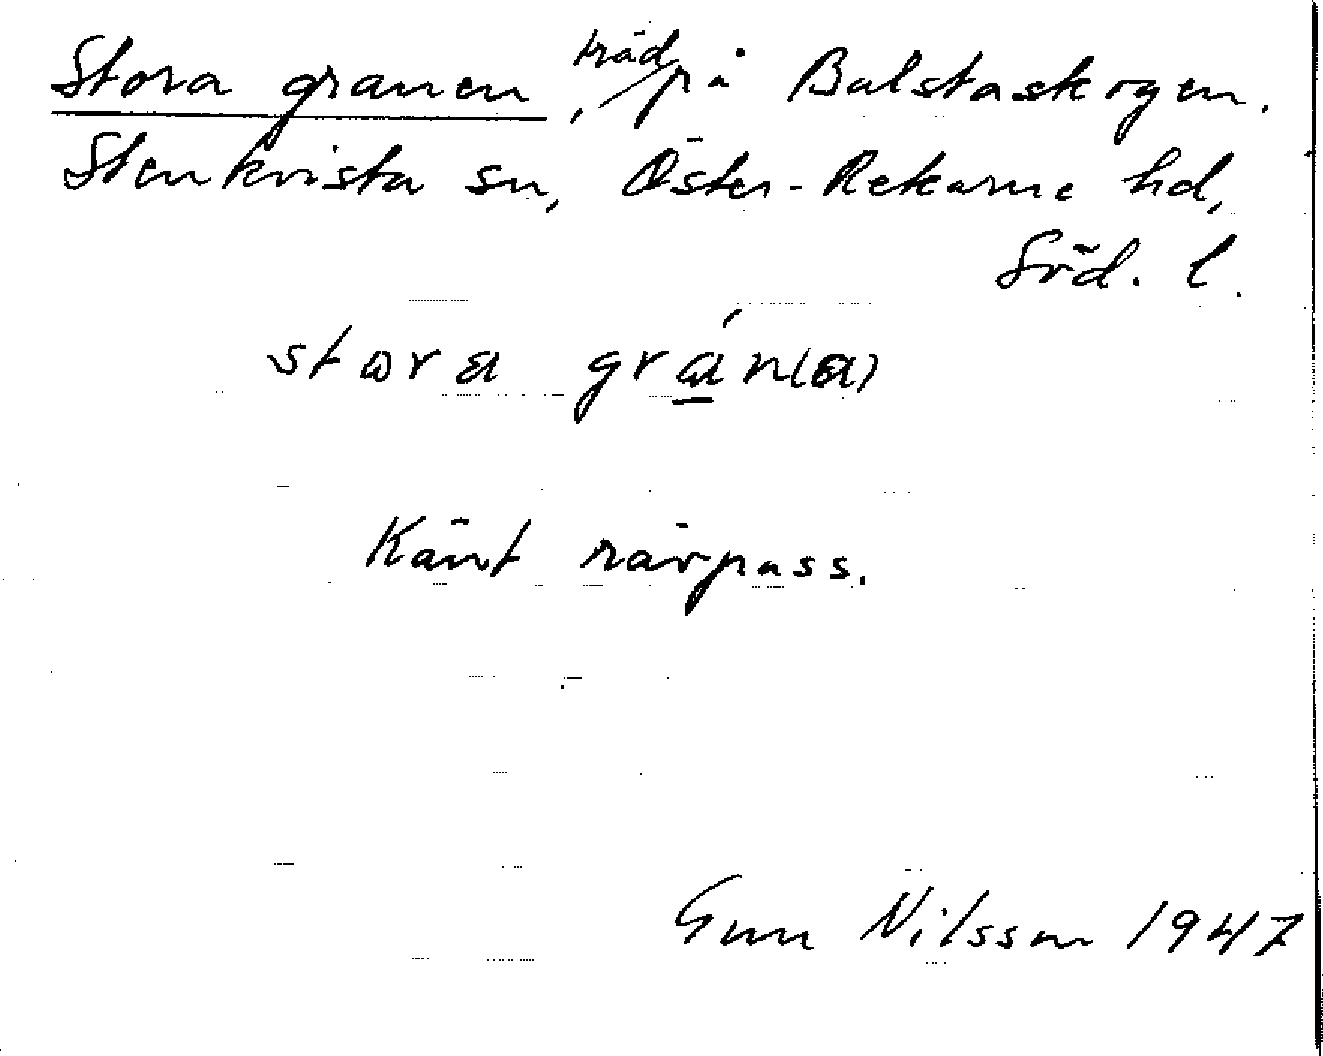 Stora granen, träd på Balstaskogen.
Stenkvista sn, Öster-Rekarne hd,
Söd. l.
stora grán(a)
Känt rävpass.
Gun Nilsson 1947